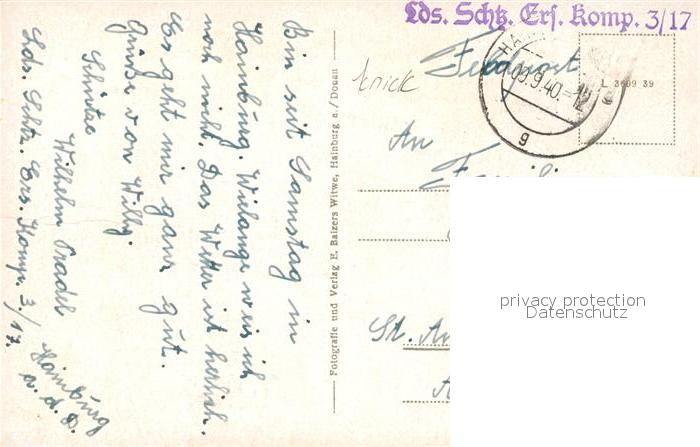 Lds. Schtz. Ers. Komp. 3/17
Feldpost
09.9.40.-12
g
L 3699 39
knick
An
St.
Bin seit Samstag in
Hainburg. Wielange weis ich
noch nicht. Das Wetter ist herrlich.
Es geht mir ganz gut.
Grüße von Willy.
Schütze
Wilhelm
Lds. Schtz. Ers. Komp. 3./17.
Hainburg
a. d. D.
Fotografie und Verlag E. Baizers Witwe, Hainburg a./Donau
privacy protection
Datenschutz